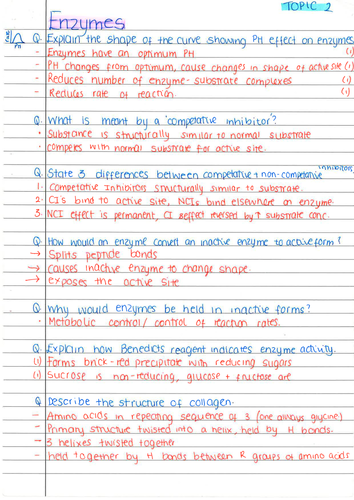 TOPIC 2
Enzymes
Q. Explain the shape of the curve showing PH effect on enzymes
- Enzymes have an optimum PH (1)
- PH changes from optimum, cause changes in shape of active site (1)
- Reduces number of enzyme-substrate complexes (1)
- Reduces rate of reaction. (1)
Q. What is meant by a 'competative inhibitor'?
• Substance is structurally similar to normal substrate
• competes with normal substrate for active site.
Q. State 3 differences between competative + non-competative inhibitors
1. Competative Inhibitors structurally similar to substrate.
2. CI's bind to active site, NCIs bind elsewhere on enzyme.
3. NCI effect is permanent, CI effect reversed by ↑ substrate conc.
Q. How would an enzyme convert an inactive enzyme to active form?
→ Splits peptide bonds
→ causes inactive enzyme to change shape
→ exposes the active site
Q. Why would enzymes be held in inactive forms?
• Metabolic control / control of reaction rates.
Q. Explain how Benedicts reagent indicates enzyme activity.
(1) Forms brick-red precipitate with reducing sugars
(1) Sucrose is non-reducing, glucose + fructose are
Q. Describe the structure of collagen.
- Amino acids in repeating sequence of 3 (one always glycine)
- Primary structure twisted into a helix, held by H bonds.
- 3 helixes twisted together
- held together by H bonds between R groups of amino acids